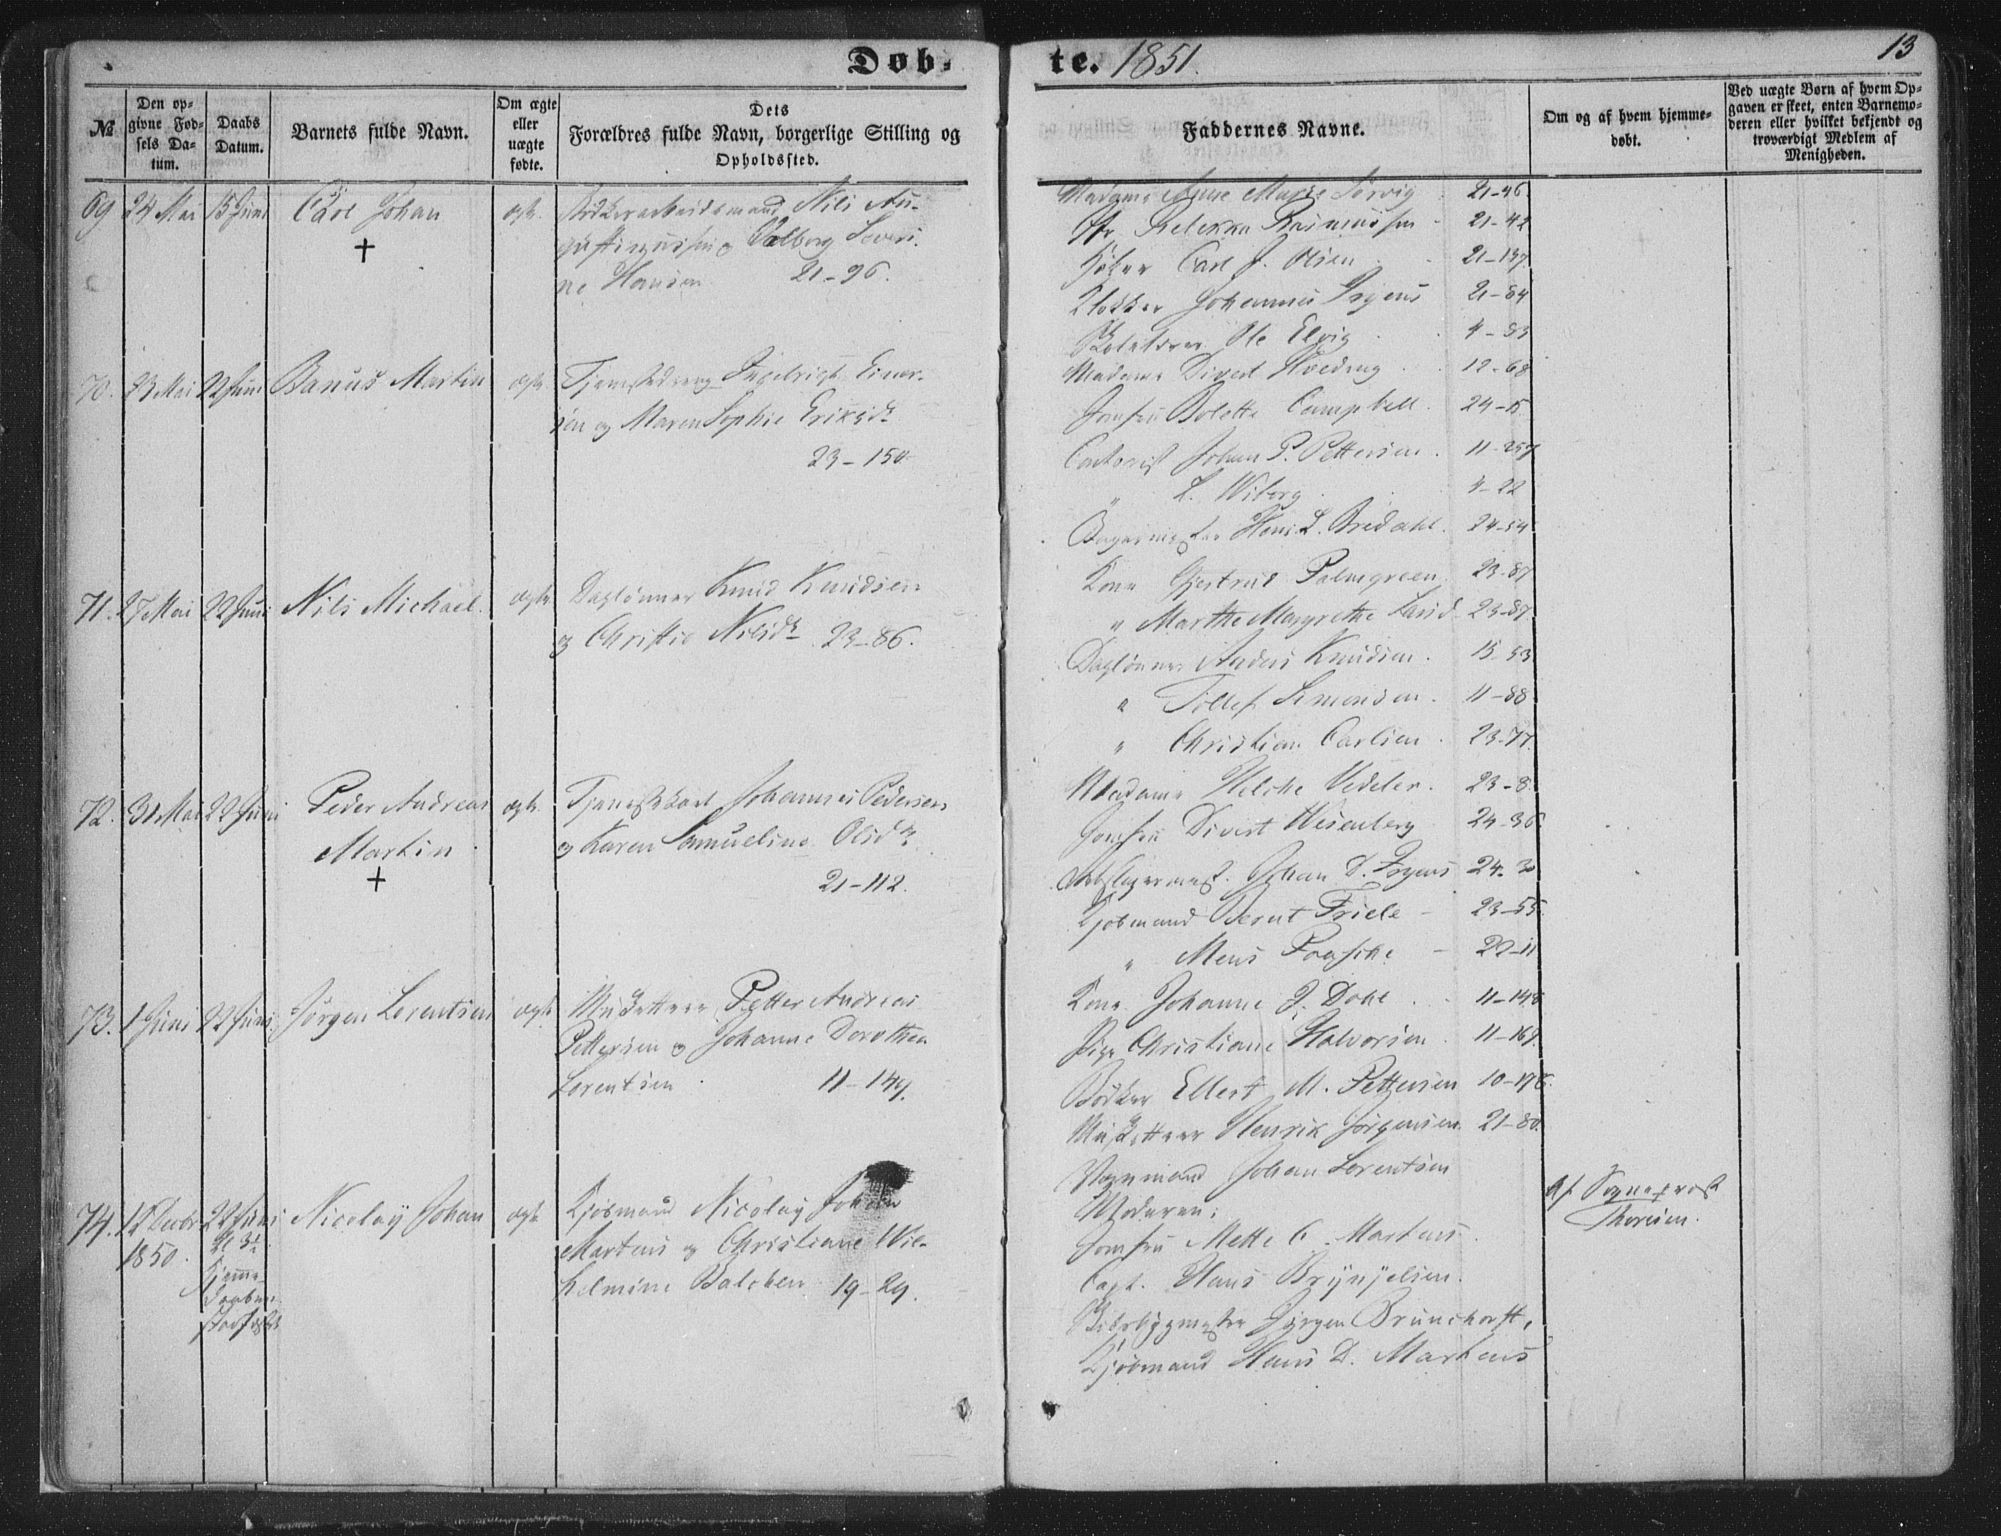 Døb-
te. 1851.
13
№
Den opgivne Fødsels Datum.
Daabs Datum.
Barnets fulde Navn.
Om ægte eller uægte fødte.
Dets Forældres fulde Navn, borgerlige Stilling og Opholdssted.
Faddernes Navne.
Om og af hvem hjemmedøbt.
Ved uægte Børn af hvem Opgaven er skeet, enten Barnemoderen eller hvilket bekjendt og troværdigt Medlem af Menigheden.
69 24 Mai 15 Juni Carl Johan ægte. Nils Au-
Valborg Severi-
ne Hansen 21-96.
Madame Anne Marie 21-46.
Rasmussen 21-42
Carl J. Olsen 21-137.
Klokker Johannes Irgens 21-84
Ole Elvig 4-83
70. 23 Mai 22 Juni Banus Martin ægte. Ingebrigt Einer-
sen og Maren Sophie Eriksdr
23-150
Madame Divert Hveding 12-68
Jomfru Bolette Campbell. 24-15
Contorist Johan P. Pettersen. 11-257
" L. Wiberg 4-22
Bagermester Hans L. Bredahl. 24-54
71. 27 Mai 22 Juni Nils Michael. ægte Daglønner Knud Knudsen
og Christie Nilsdr 23-86.
Kone Gjertrud Palmgreen 23-87
" Marthe Margrethe Larsd. 23-87.
Daglønner Anders Knudsen. 15-53
" Tollef Simonsen. 11-88
" Christian Carlsen. 23-77.
72. 31 Mai 22 Juni Peder Andreas
Martin ægte. Tjenestekarl Johannes Pedersen
og Karen Samueline Olsdr
21-112.
Madame Helche Vedeler. 23-8
Jomfru Divert Wesenberg 24-36
Johan D. Irgens 24-30
Kjøbmand Bernt Friele - 23-55.
" Mens Paasche - 22-11
73. 1 Juni 22 Juni Jørgen Lorentsen ægte Musketteer Petter Andreas
Pettersen og Johanne Dorothea
Lorentsen. 11-149.
Kone Johanne J. Dahl. 11-148
Pige Christiane Halvorsen. 11-169.
Bødker Ellert M. Pettersen 10-196.
Musketteer Henrik Jørgensen. 21-80.
Vognmand Johan Lorentsen
74. 12 Decbr
1850. 22 Juni
Nicolay Johan ægte Kjøbmand Nicolay Johan
Martens og Christiane Wil-
helmine Balchen 19-29.
Moderen.
Jomfru Mette C. Martens.
Capt. Hans Brynjelsen.
Jørgen Brunchorst,
Kjøbmand Hans D. Martens
Af Sogneprest
Thoresen.